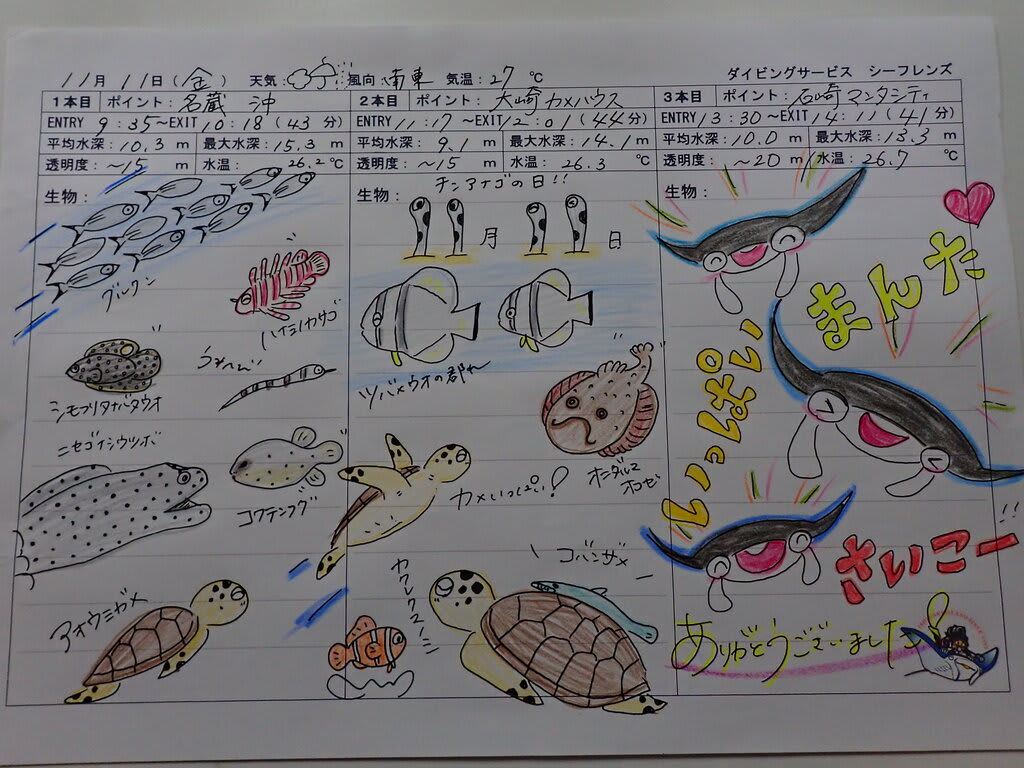 11月 11日(金) 天気: 風向:南東 気温:27℃ ダイビングサービス シーフレンズ
1本目 ポイント:名蔵 沖
ENTRY 9:35~EXIT 10:18(43分)
平均水深:10.3m 最大水深:15.3m
透明度:~15m 水温:26.2℃
生物:
グルクン
ハナミノカサゴ
シモフリタナバタウオ
ニセゴイシウツボ
コクテンフグ
アオウミガメ
2本目 ポイント:大崎 カメハウス
ENTRY 11:17~EXIT 12:01(44分)
平均水深:9.1m 最大水深:14.1m
透明度:~15m 水温:26.3℃
生物:
チンアナゴの日!!
月 日
ツバメウオの群れ
オニダルマ
オコゼ
カメいっぱい!
コバンザメ
カクレクマノミ
3本目 ポイント:石崎 マンタシティ
ENTRY 13:30~EXIT 14:11(41分)
平均水深:10.0m 最大水深:13.3m
透明度:~20m 水温:26.7℃
生物:
まんた
いっぱい
さいこー!!
ありがとうございました!